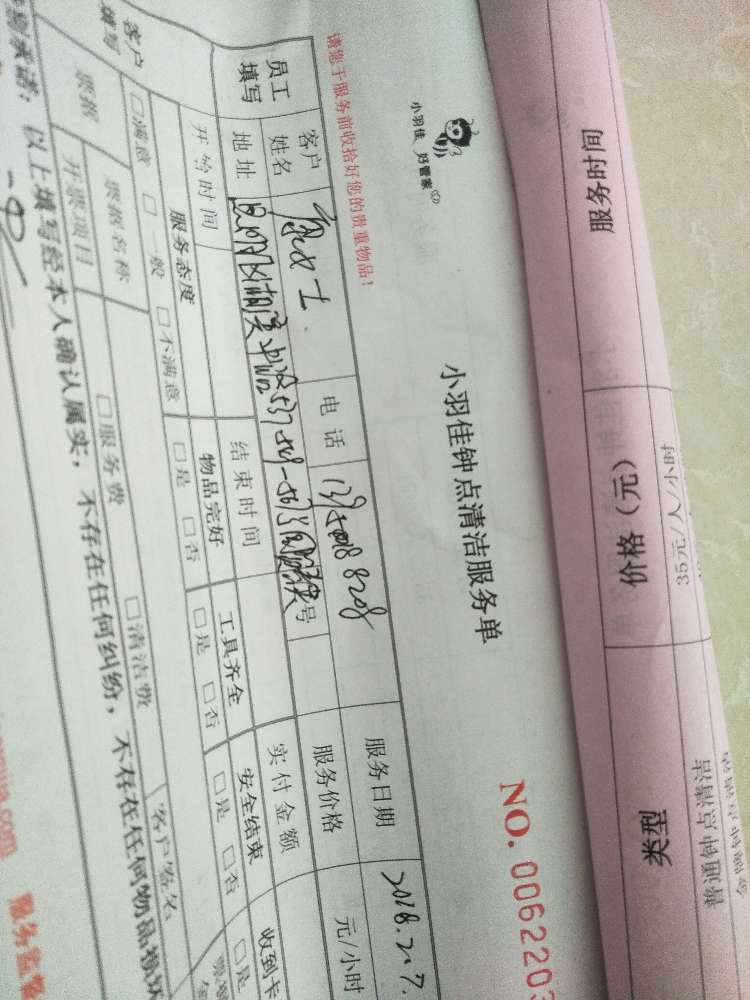 服务时间
价格（元）
类型
35元/人/小时
普通钟点清洁
小羽佳 好管家
小羽佳钟点清洁服务单
NO. 0062203
请您于服务前收拾好您的贵重物品！
员工填写
客户姓名
女士
电话
服务日期
2018.2.7.
地址
号
服务价格
元/小时
开始时间
结束时间
实付金额
客户填写
服务态度
物品完好
工具齐全
安全结束
收到卡
□满意 □一般 □不满意
□是 □否
□是 □否
□是 □否
□是
票据
票据名称
□服务费
□清洁费
客户签名
开票项目
承诺：以上填写经本人确认属实，不存在任何纠纷，不存在任何物品损坏
服务监督